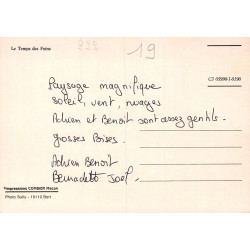 Le Temps des Foins
19
Paysage magnifique
soleil, vent, nuages
Adrien et Benoit sont assez gentils.
grosses Bises.
Adrien Benoit
Bernadette Joel
Impressions COMBIER Macon
Photo Sully - 19110 Bort